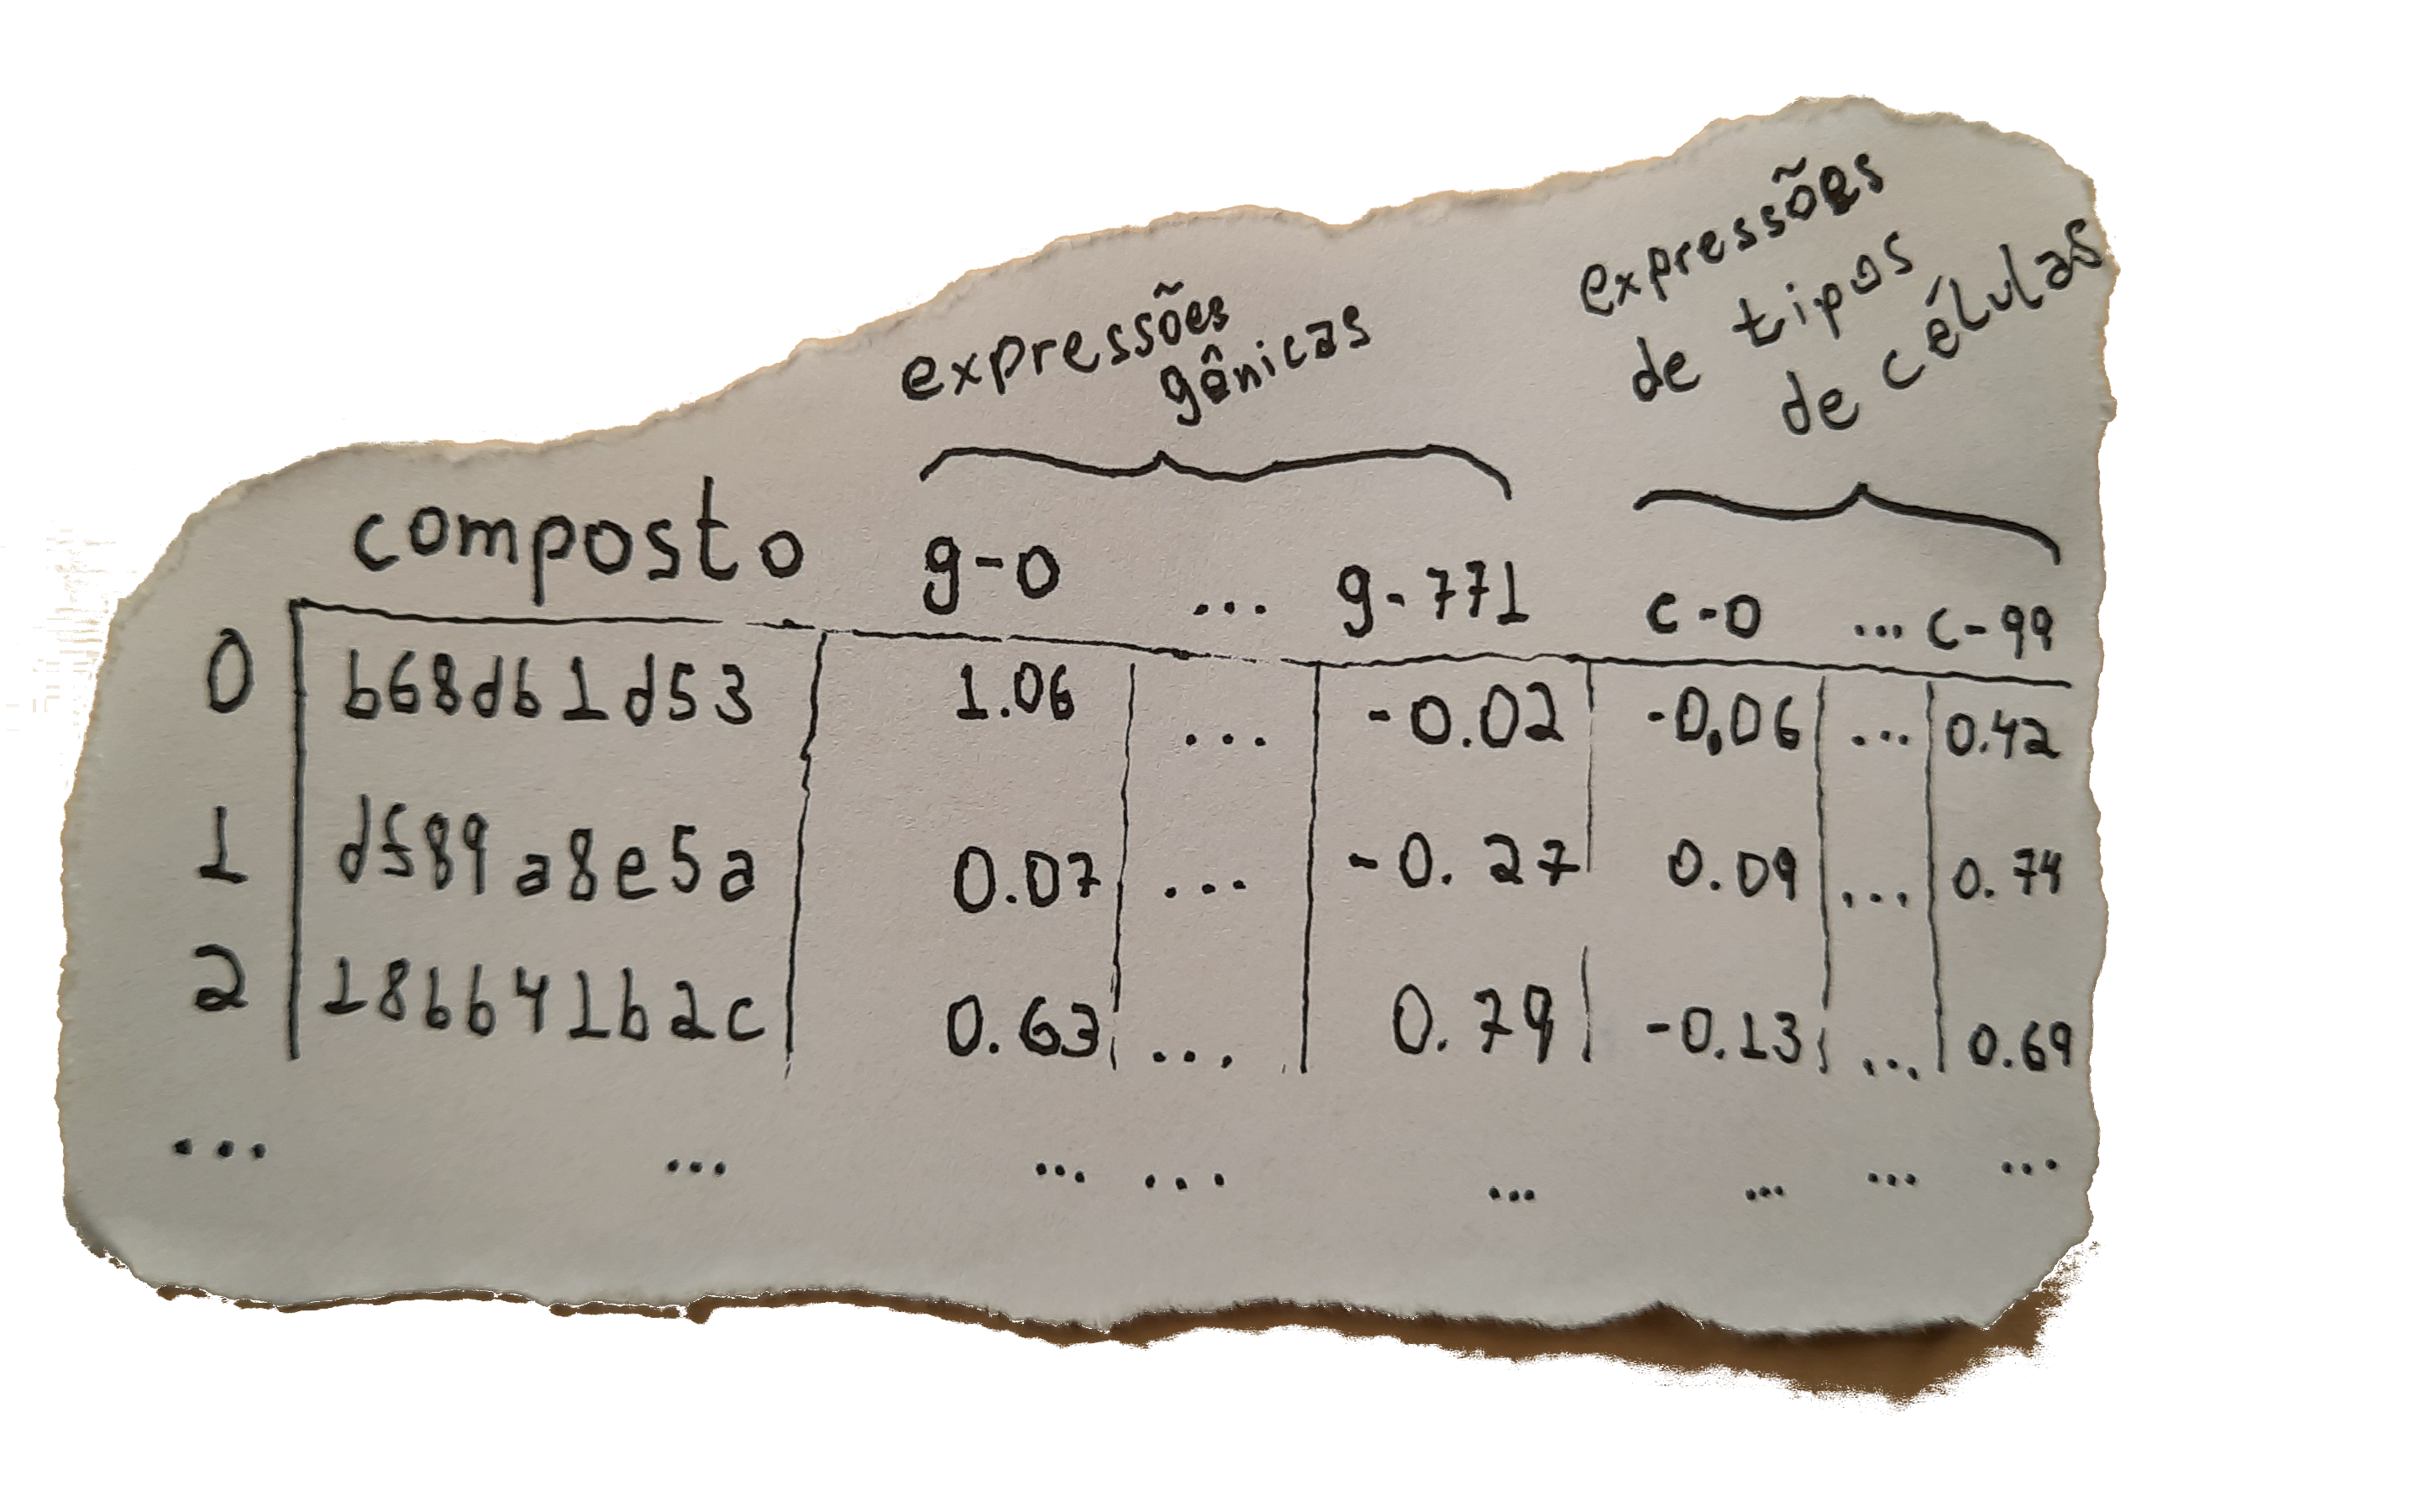 expressões
de tipos
de células
expressões
gênicas
composto g-0 ... g-771 c-0 ... c-99
0 b68db1d53 1.06 ... -0.02 -0,06 ... 0.42
1 df89a8e5a 0.07 ... -0.27 0.09 ... 0.74
2 18bb41b2c 0.63 ... 0.79 -0.13 ... 0.69
... ... ... ... ... ... ... ...